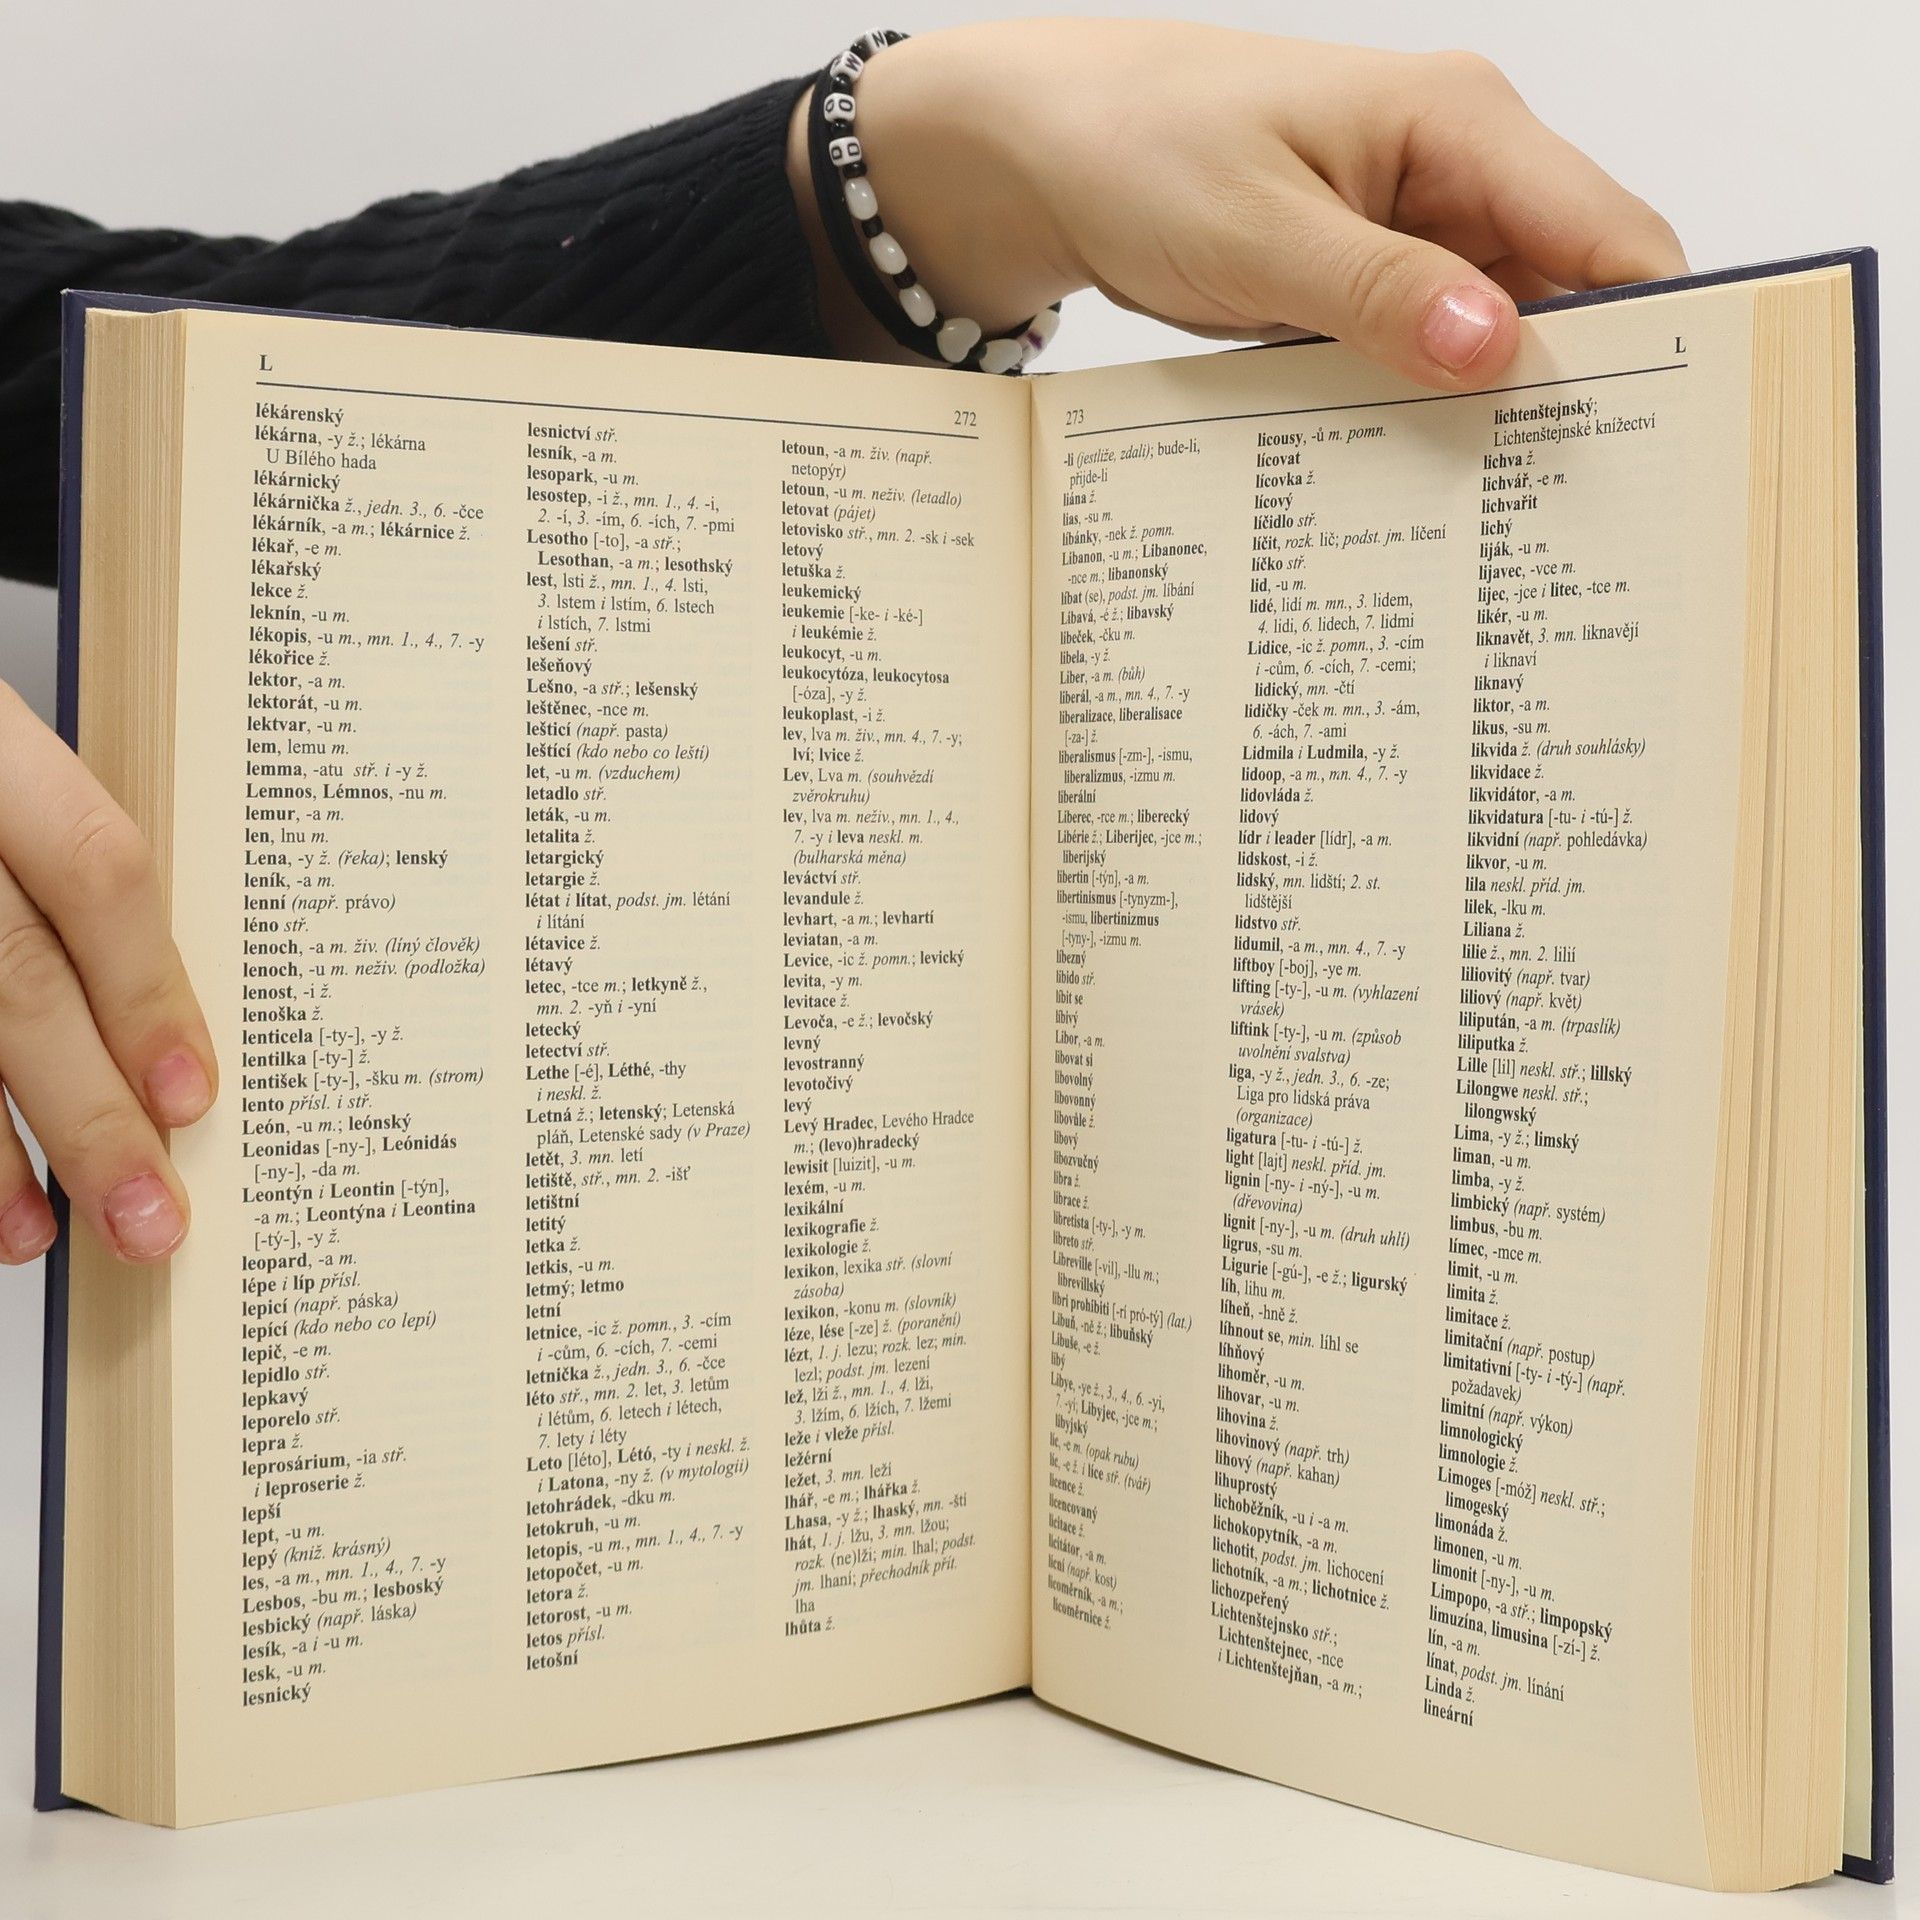 D
O
W
N
L
272
lékárenský
lékárna, -y ž.; lékárna
U Bílého hada
lékárnický
lékárnička ž., jedn. 3., 6. -čce
lékárník, -a m.; lékárnice ž.
lékař, -e m.
lékařský
lekce ž.
leknín, -u m.
lékopis, -u m., mn. 1., 4., 7. -y
lékořice ž.
lektor, -a m.
lektorát, -u m.
lektvar, -u m.
lem, lemu m.
lemma, -atu stř. i -y ž.
Lemnos, Lémnos, -nu m.
lemur, -a m.
len, lnu m.
Lena, -y ž. (řeka); lenský
leník, -a m.
lenní (např. právo)
léno stř.
lenoch, -a m. živ. (líný člověk)
lenoch, -u m. neživ. (podložka)
lenost, -i ž.
lenoška ž.
lenticela [-ty-], -y ž.
lentilka [-ty-] ž.
lentišek [-ty-], -šku m. (strom)
lento přísl. i stř.
León, -u m.; leónský
Leonidas [-ny-], Leónidás
[-ny-], -da m.
Leontýn i Leontin [-týn],
-a m.; Leontýna i Leontina
[-tý-], -y ž.
leopard, -a m.
lépe i líp přísl.
lepicí (např. páska)
lepící (kdo nebo co lepí)
lepič, -e m.
lepidlo stř.
lepkavý
leporelo stř.
lepra ž.
leprosárium, -ia stř.
i leproserie ž.
lepší
lept, -u m.
lepý (kniž. krásný)
les, -a m., mn. 1., 4., 7. -y
Lesbos, -bu m.; lesboský
lesbický (např. láska)
lesík, -a i -u m.
lesk, -u m.
lesnický
lesnictví stř.
lesník, -a m.
lesopark, -u m.
lesostep, -i ž., mn. 1., 4. -i,
2. -í, 3. -ím, 6. -ích, 7. -pmi
Lesotho [-to], -a stř.;
Lesothan, -a m.; lesothský
lest, lsti ž., mn. 1., 4. lsti,
3. lstem i lstím, 6. lstech
i lstích, 7. lstmi
lešení stř.
lešeňový
Lešno, -a stř.; lešenský
leštěnec, -nce m.
lešticí (např. pasta)
leštící (kdo nebo co leští)
let, -u m. (vzduchem)
letadlo stř.
leták, -u m.
letalita ž.
letargický
letargie ž.
létat i lítat, podst. jm. létání
i lítání
létavice ž.
létavý
letec, -tce m.; letkyně ž.,
mn. 2. -yň i -yní
letecký
letectví stř.
Lethe [-é], Léthé, -thy
i neskl. ž.
Letná ž.; letenský; Letenská
pláň, Letenské sady (v Praze)
letět, 3. mn. letí
letiště, stř., mn. 2. -išť
letištní
letitý
letka ž.
letkis, -u m.
letmý; letmo
letní
letnice, -ic ž. pomn., 3. -cím
i -cům, 6. -cích, 7. -cemi
letnička ž., jedn. 3., 6. -čce
léto stř., mn. 2. let, 3. letům
i létům, 6. letech i létech,
7. lety i léty
Leto [léto], Létó, -ty i neskl. ž.
i Latona, -ny ž. (v mytologii)
letohrádek, -dku m.
letokruh, -u m.
letopis, -u m., mn. 1., 4., 7. -y
letopočet, -u m.
letora ž.
letorost, -u m.
letos přísl.
letošní
letoun, -a m. živ. (např.
netopýr)
letoun, -u m. neživ. (letadlo)
letovat (pájet)
letovisko stř., mn. 2. -sk i -sek
letový
letuška ž.
leukemický
leukemie [-ke- i -ké-]
i leukémie ž.
leukocyt, -u m.
leukocytóza, leukocytosa
[-óza], -y ž.
leukoplast, -i ž.
lev, lva m. živ., mn. 4., 7. -y;
lví; lvice ž.
Lev, Lva m. (souhvězdí
zvěrokruhu)
lev, lva m. neživ., mn. 1., 4.,
7. -y i leva neskl. m.
(bulharská měna)
leváctví stř.
levandule ž.
levhart, -a m.; levhartí
leviatan, -a m.
Levice, -ic ž. pomn.; levický
levita, -y m.
levitace ž.
Levoča, -e ž.; levočský
levný
levostranný
levotočivý
levý
Levý Hradec, Levého Hradce
m.; (levo)hradecký
lewisit [luizit], -u m.
lexém, -u m.
lexikální
lexikografie ž.
lexikologie ž.
lexikon, lexika stř. (slovní
zásoba)
lexikon, -konu m. (slovník)
léze, lése [-ze] ž. (poranění)
lézt, 1. j. lezu; rozk. lez; min.
lezl; podst. jm. lezení
lež, lži ž., mn. 1., 4. lži,
3. lžím, 6. lžích, 7. lžemi
leže i vleže přísl.
ležérní
ležet, 3. mn. leží
lhář, -e m.; lhářka ž.
Lhasa, -y ž.; lhaský, mn. -ští
lhát, 1. j. lžu, 3. mn. lžou;
rozk. (ne)lži; min. lhal; podst.
jm. lhaní; přechodník přít.
lha
lhůta ž.
L
273
-li (jestliže, zdali); bude-li,
přijde-li
liána ž.
lias, -su m.
líbánky, -nek ž. pomn.
Libanon, -u m.; Libanonec,
-nce m.; libanonský
líbat (se), podst. jm. líbání
Libavá, -é ž.; libavský
libeček, -čku m.
libela, -y ž.
Liber, -a m. (bůh)
liberál, -a m., mn. 4., 7. -y
liberalizace, liberalisace
[-za-] ž.
liberalismus [-zm-], -ismu,
liberalizmus, -izmu m.
liberální
Liberec, -rce m.; liberecký
Libérie ž.; Liberijec, -jce m.;
liberijský
libertin [-týn], -a m.
libertinismus [-tynyzm-],
-ismu, libertinizmus
[-tyny-], -izmu m.
líbezný
libido stř.
líbit se
líbivý
Libor, -a m.
libovat si
libovolný
libovonný
libovůle ž.
libový
libozvučný
libra ž.
librace ž.
libretista [-ty-], -y m.
libreto stř.
Libreville [-vil], -llu m.;
librevillský
libri prohibiti [-ri pró-tý] (lat.)
Libuň, -ně ž.; libuňský
Libuše, -e ž.
libý
Libye, -ye ž., 3., 4., 6. -yi,
7. -yí; Libyjec, -jce m.;
libyjský
líc, -e m. (opak rubu)
líc, -e ž. i líce stř. (tvář)
licence ž.
licencovaný
licitace ž.
licitátor, -a m.
lícní (např. kost)
licoměrník, -a m.;
licoměrnice ž.
licousy, -ů m. pomn.
lícovat
lícovka ž.
lícový
líčidlo stř.
líčit, rozk. lič; podst. jm. líčení
líčko stř.
lid, -u m.
lidé, lidí m. mn., 3. lidem,
4. lidi, 6. lidech, 7. lidmi
Lidice, -ic ž. pomn., 3. -cím
i -cům, 6. -cích, 7. -cemi;
lidický, mn. -čtí
lidičky -ček m. mn., 3. -ám,
6. -ách, 7. -ami
Lidmila i Ludmila, -y ž.
lidoop, -a m., mn. 4., 7. -y
lidovláda ž.
lidový
lídr i leader [lídr], -a m.
lidskost, -i ž.
lidský, mn. lidští; 2. st.
lidštější
lidstvo stř.
lidumil, -a m., mn. 4., 7. -y
liftboy [-boj], -ye m.
lifting [-ty-], -u m. (vyhlazení
vrásek)
liftink [-ty-], -u m. (způsob
uvolnění svalstva)
liga, -y ž., jedn. 3., 6. -ze;
Liga pro lidská práva
(organizace)
ligatura [-tu- i -tú-] ž.
light [lajt] neskl. příd. jm.
lignin [-ny- i -ný-], -u m.
(dřevovina)
lignit [-ny-], -u m. (druh uhlí)
ligrus, -su m.
Ligurie [-gú-], -e ž.; ligurský
líh, lihu m.
líheň, -hně ž.
líhnout se, min. líhl se
líhňový
lihoměr, -u m.
lihovar, -u m.
lihovina ž.
lihovinový (např. trh)
lihový (např. kahan)
lihuprostý
lichoběžník, -u i -a m.
lichokopytník, -a m.
lichotit, podst. jm. lichocení
lichotník, -a m.; lichotnice ž.
lichozpeřený
Lichtenštejnsko stř.;
Lichtenštejnec, -nce
i Lichtenštejňan, -a m.;
lichtenštejnský;
Lichtenštejnské knížectví
lichva ž.
lichvář, -e m.
lichvařit
lichý
liják, -u m.
lijavec, -vce m.
lijec, -jce i litec, -tce m.
likér, -u m.
liknavět, 3. mn. liknavějí
i liknaví
liknavý
liktor, -a m.
likus, -su m.
likvida ž. (druh souhlásky)
likvidace ž.
likvidátor, -a m.
likvidatura [-tu- i -tú-] ž.
likvidní (např. pohledávka)
likvor, -u m.
lila neskl. příd. jm.
lilek, -lku m.
Liliana ž.
lilie ž., mn. 2. lilií
liliovitý (např. tvar)
liliový (např. květ)
lilipután, -a m. (trpaslík)
liliputka ž.
Lille [lil] neskl. stř.; lillský
Lilongwe neskl. stř.;
lilongwský
Lima, -y ž.; limský
liman, -u m.
limba, -y ž.
limbický (např. systém)
limbus, -bu m.
límec, -mce m.
limit, -u m.
limita ž.
limitace ž.
limitační (např. postup)
limitativní [-ty- i -tý-] (např.
požadavek)
limitní (např. výkon)
limnologický
limnologie ž.
Limoges [-móž] neskl. stř.;
limogeský
limonáda ž.
limonen, -u m.
limonit [-ny-], -u m.
Limpopo, -a stř.; limpopský
limuzína, limusina [-zí-] ž.
lín, -a m.
línat, podst. jm. línání
Linda ž.
lineární